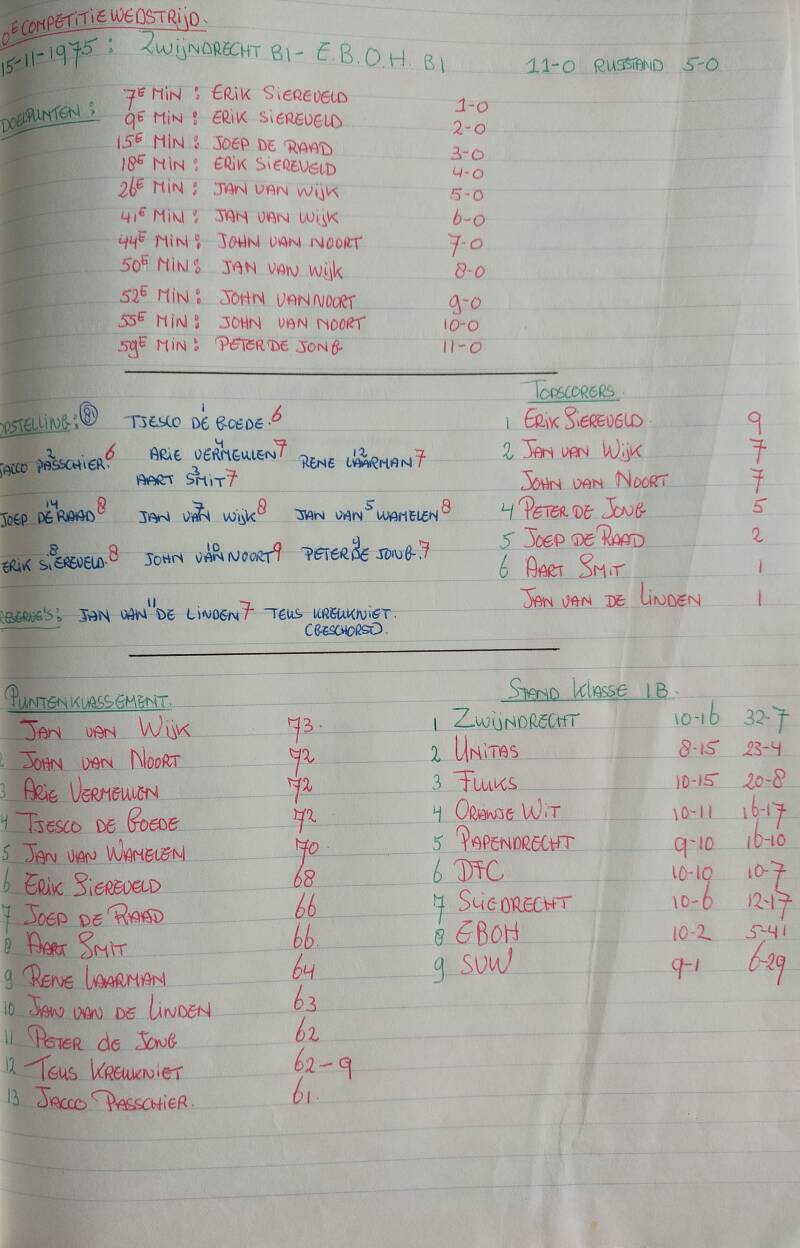 0E COMPETITIEWEDSTRIJD.
15-11-1975: ZWIJNDRECHT B1 - E.B.O.H. B1 11-0 RUSTSTAND 5-0
DOELPUNTEN: 7E MIN: ERIK SIEREVELD 1-0
9E MIN: ERIK SIEREVELD 2-0
15E MIN: JOEP DE RAAD 3-0
18E MIN: ERIK SIEREVELD 4-0
26E MIN: JAN VAN WIJK 5-0
41E MIN: JAN VAN WIJK 6-0
44E MIN: JOHN VAN NOORT 7-0
50E MIN: JAN VAN WIJK 8-0
52E MIN: JOHN VAN NOORT 9-0
55E MIN: JOHN VAN NOORT 10-0
59E MIN: PETER DE JONG 11-0
OPSTELLING: 81 TJESCO DE GOEDE. 1 6
JACCO PASSCHIER. 2 6 ARIE VERMEULEN 4 7 RENE LAARMAN 12 7
AART SMIT 3 7
JOEP DE RAAD 14 8 JAN VAN WIJK 7 8 JAN VAN WAMELEN 5 8
ERIK SIEREVELD. 8 8 JOHN VAN NOORT 10 9 PETER DE JONG. 9 7
RESERVE'S: JAN VAN DE LINDEN 11 7 TEUS KREUKNIET.
(GESCHORST).
TOPSCORERS.
1 ERIK SIEREVELD 9
2 JAN VAN WIJK 7
JOHN VAN NOORT 7
4 PETER DE JONG 5
5 JOEP DE RAAD 2
6 AART SMIT 1
JAN VAN DE LINDEN 1
PUNTENKLASSEMENT.
JAN VAN WIJK 73.
2 JOHN VAN NOORT 72
3 ARIE VERMEULEN 72
4 TJESCO DE GOEDE 72
5 JAN VAN WAMELEN 70
6 ERIK SIEREVELD 68
7 JOEP DE RAAD 66
8 AART SMIT 66.
9 RENE LAARMAN 64
10 JAN VAN DE LINDEN 63
11 PETER de JONG 62
12 TEUS KREUKNIET 62-9
13 JACCO PASSCHIER. 61.
STAND KLASSE 1B.
1 ZWIJNDRECHT 10-16 32-7
2 UNITAS 8-15 23-4
3 FLUKS 10-15 20-8
4 ORANJE WIT 10-11 16-17
5 PAPENDRECHT 9-10 16-10
6 DFC 10-10 10-7
7 SLIEDRECHT 10-6 12-17
8 EBOH 10-2 5-41
9 SVW 9-1 6-29